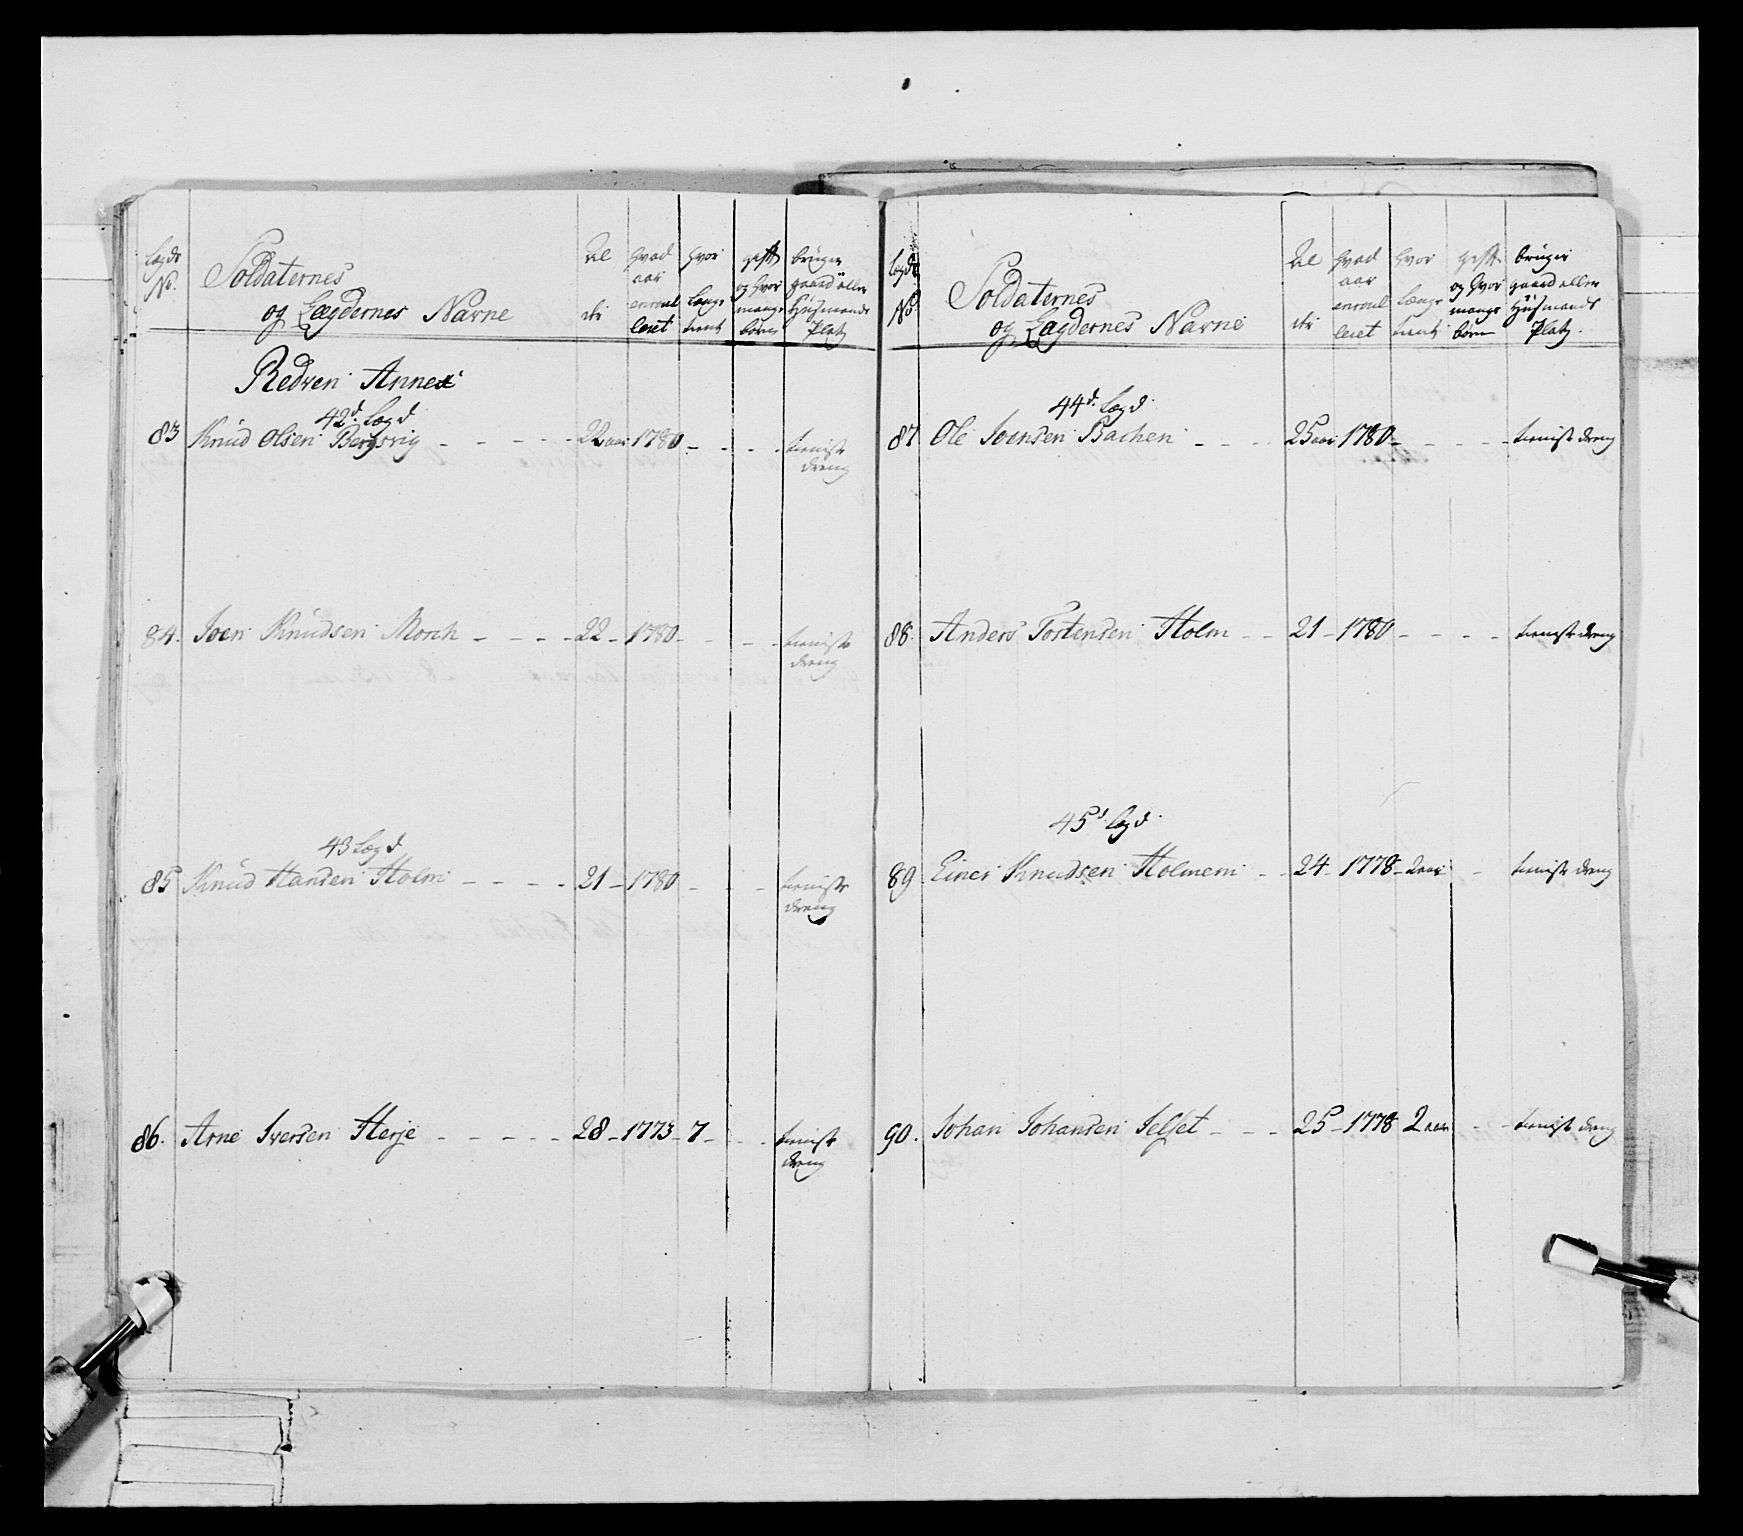 Lægds No. Soldaternes og Lægdernes Navne Al der hvad aar enroul leret hvor længe tient gift og hvor mange børn bruger gaard eller Huusmands Platz
Redven Annex
42d. Lægd
83 Knud Olsen Bergsvig - - - - 22 aar 1780 - - - - tieniste dreng
84. Joen Knudsen Morch - - - - 22 - 1780 - - - - tieniste dreng
43 Lægd
85 Knud Hansen Holm - - - - 21 - 1780 - - - tieniste dreng
86. Arne Iversen Herje - - - - - 28 - 1773 - 7 - - - tieniste dreng
Lægds No. Soldaternes og Lægdernes Navne Al der hvad aar enroul leret hvor længe tient gift og hvor mange børn bruger gaard eller Huusmands Platz.
44d. Lægd
87 Ole Joensen Bachen - - - - 25 aar 1780 - - - - - tieniste dreng
88. Anders Tostensen Holm - - 21 - 1780 - - - - tieniste dreng
45d Lægd
89 Einer Knudsen Holmem - - 24 - 1778 - 2 aar - tieniste dreng
90. Johan Johansen Selset - - - 25 - 1778 2 aar - - tieniste dreng